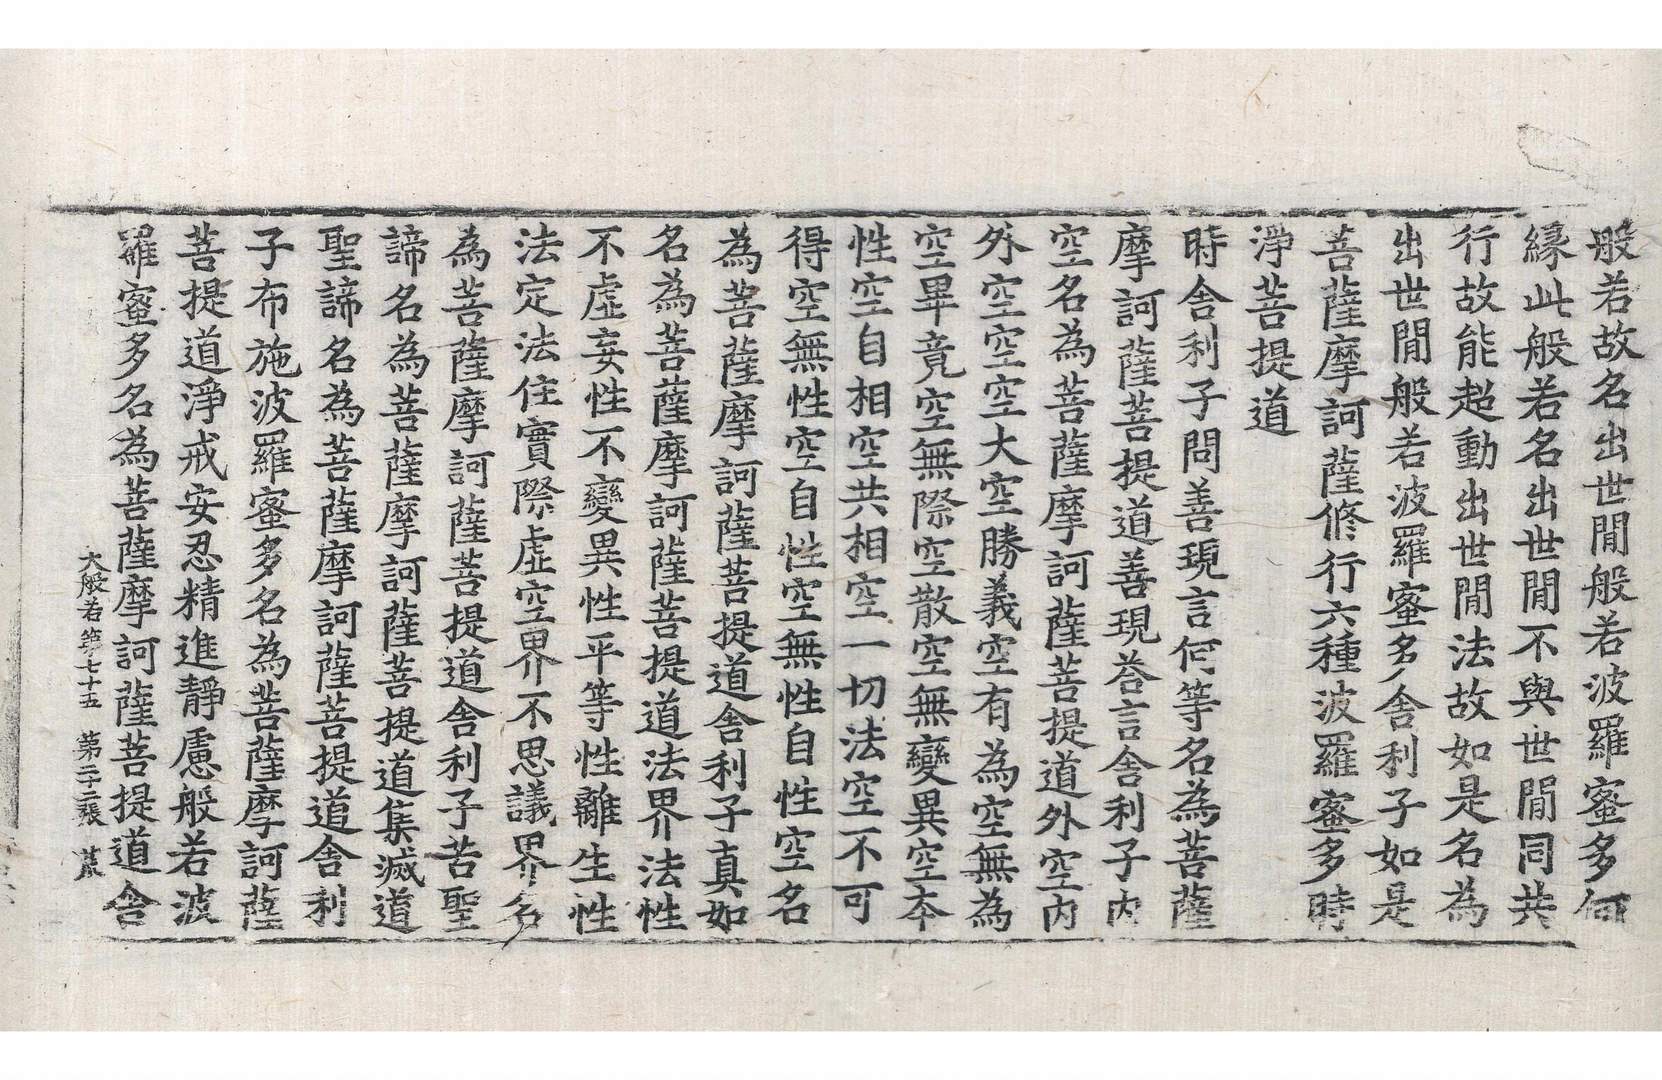 般若故名出世閒般若波羅蜜多何
緣此般若名出世閒不與世閒同共
行故能超動出世閒法故如是名為
出世閒般若波羅蜜多舍利子如是
菩薩摩訶薩修行六種波羅蜜多時
淨菩提道
時舍利子問善現言何等名為菩薩
摩訶薩菩提道善現荅言舍利子內
空名為菩薩摩訶薩菩提道外空內
外空空空大空勝義空有為空無為
空畢竟空無際空散空無變異空本
性空自相空共相空一切法空不可
得空無性空自性空無性自性空名
為菩薩摩訶薩菩提道舍利子真如
名為菩薩摩訶薩菩提道法界法性
不虛妄性不變異性平等性離生性
法定法住實際虛空界不思議界名
為菩薩摩訶薩菩提道舍利子苦聖
諦名為菩薩摩訶薩菩提道集滅道
聖諦名為菩薩摩訶薩菩提道舍利
子布施波羅蜜多名為菩薩摩訶薩
菩提道淨戒安忍精進靜慮般若波
羅蜜多名為菩薩摩訶薩菩提道舍
大般若第七十五 第二十二張 菓